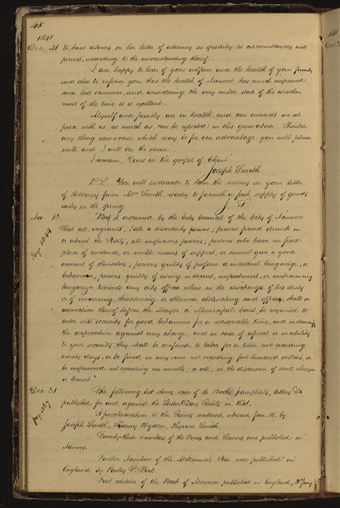 48
1841
Dec. 21 to have returns on her letter of attorney as speedily as circumstances will
permit, according to the understanding thereof.
I am happy to hear of your welfare and the health of your family
and also to inform you that the health of Nauvoo has much improved
since last summer, and considering the very mild state of the weather
most of the time is excellent.
Myself and family are in health, and our enemies are at
peace with us, as much as can be expected in this generation. Should
any thing new occur which may be for our advantage you will please
write and I will do the same.
I remain, Yours in the gospel of Christ
Joseph Smith
P.S. You will endeavor to have the money on your letter
of Attorney from Mr. Smith, ready to furnish a fresh supply of goods
early in the spring. J. S.
Nov 13. "Be it ordained by the City Council of the City of Nauvoo
That all vagrants, idle or disorderly persons; persons found drunk in
or about the streets, all suspicious persons; persons who have no fixed
place of residence, or visible means of support, or cannot give a good
account of themselves; persons guilty of profane or indecent language, or
behavior; persons guilty of using indecent, impertinent, or unbecoming
language towards any city officer when in the discharge of his duty
or of menacing, threatening, or otherwise obstructing said officer, shall on
conviction thereof before the Mayor or Municipal Court be required to
enter into security for good behavior for a reasonable time, and indemnify
the corporation against any charge, and in case of refusal or inability
to give security they shall be confined to labor for a time not exceeding
ninety days, or be fined in any sum not exceeding five hundred dollars, or
be imprisoned not exceeding six months, or all, at the discretion of said Mayor
or Court."
Dec. 31 The following list shows many of the Books pamphlets, letters &c
published for and against the Latter Day Saints in 1841.
A proclamation to the Saints scattered abroad Jan. 15. by
Joseph Smith, Sidney Rigdon, Hyrum Smith.
Twenty four numbers of the Times and Seasons were published in
Nauvoo.
Twelve Numbers of the Millennial Star were published in
England by Parley P. Pratt.
First edition of the Book of Mormon published in England,